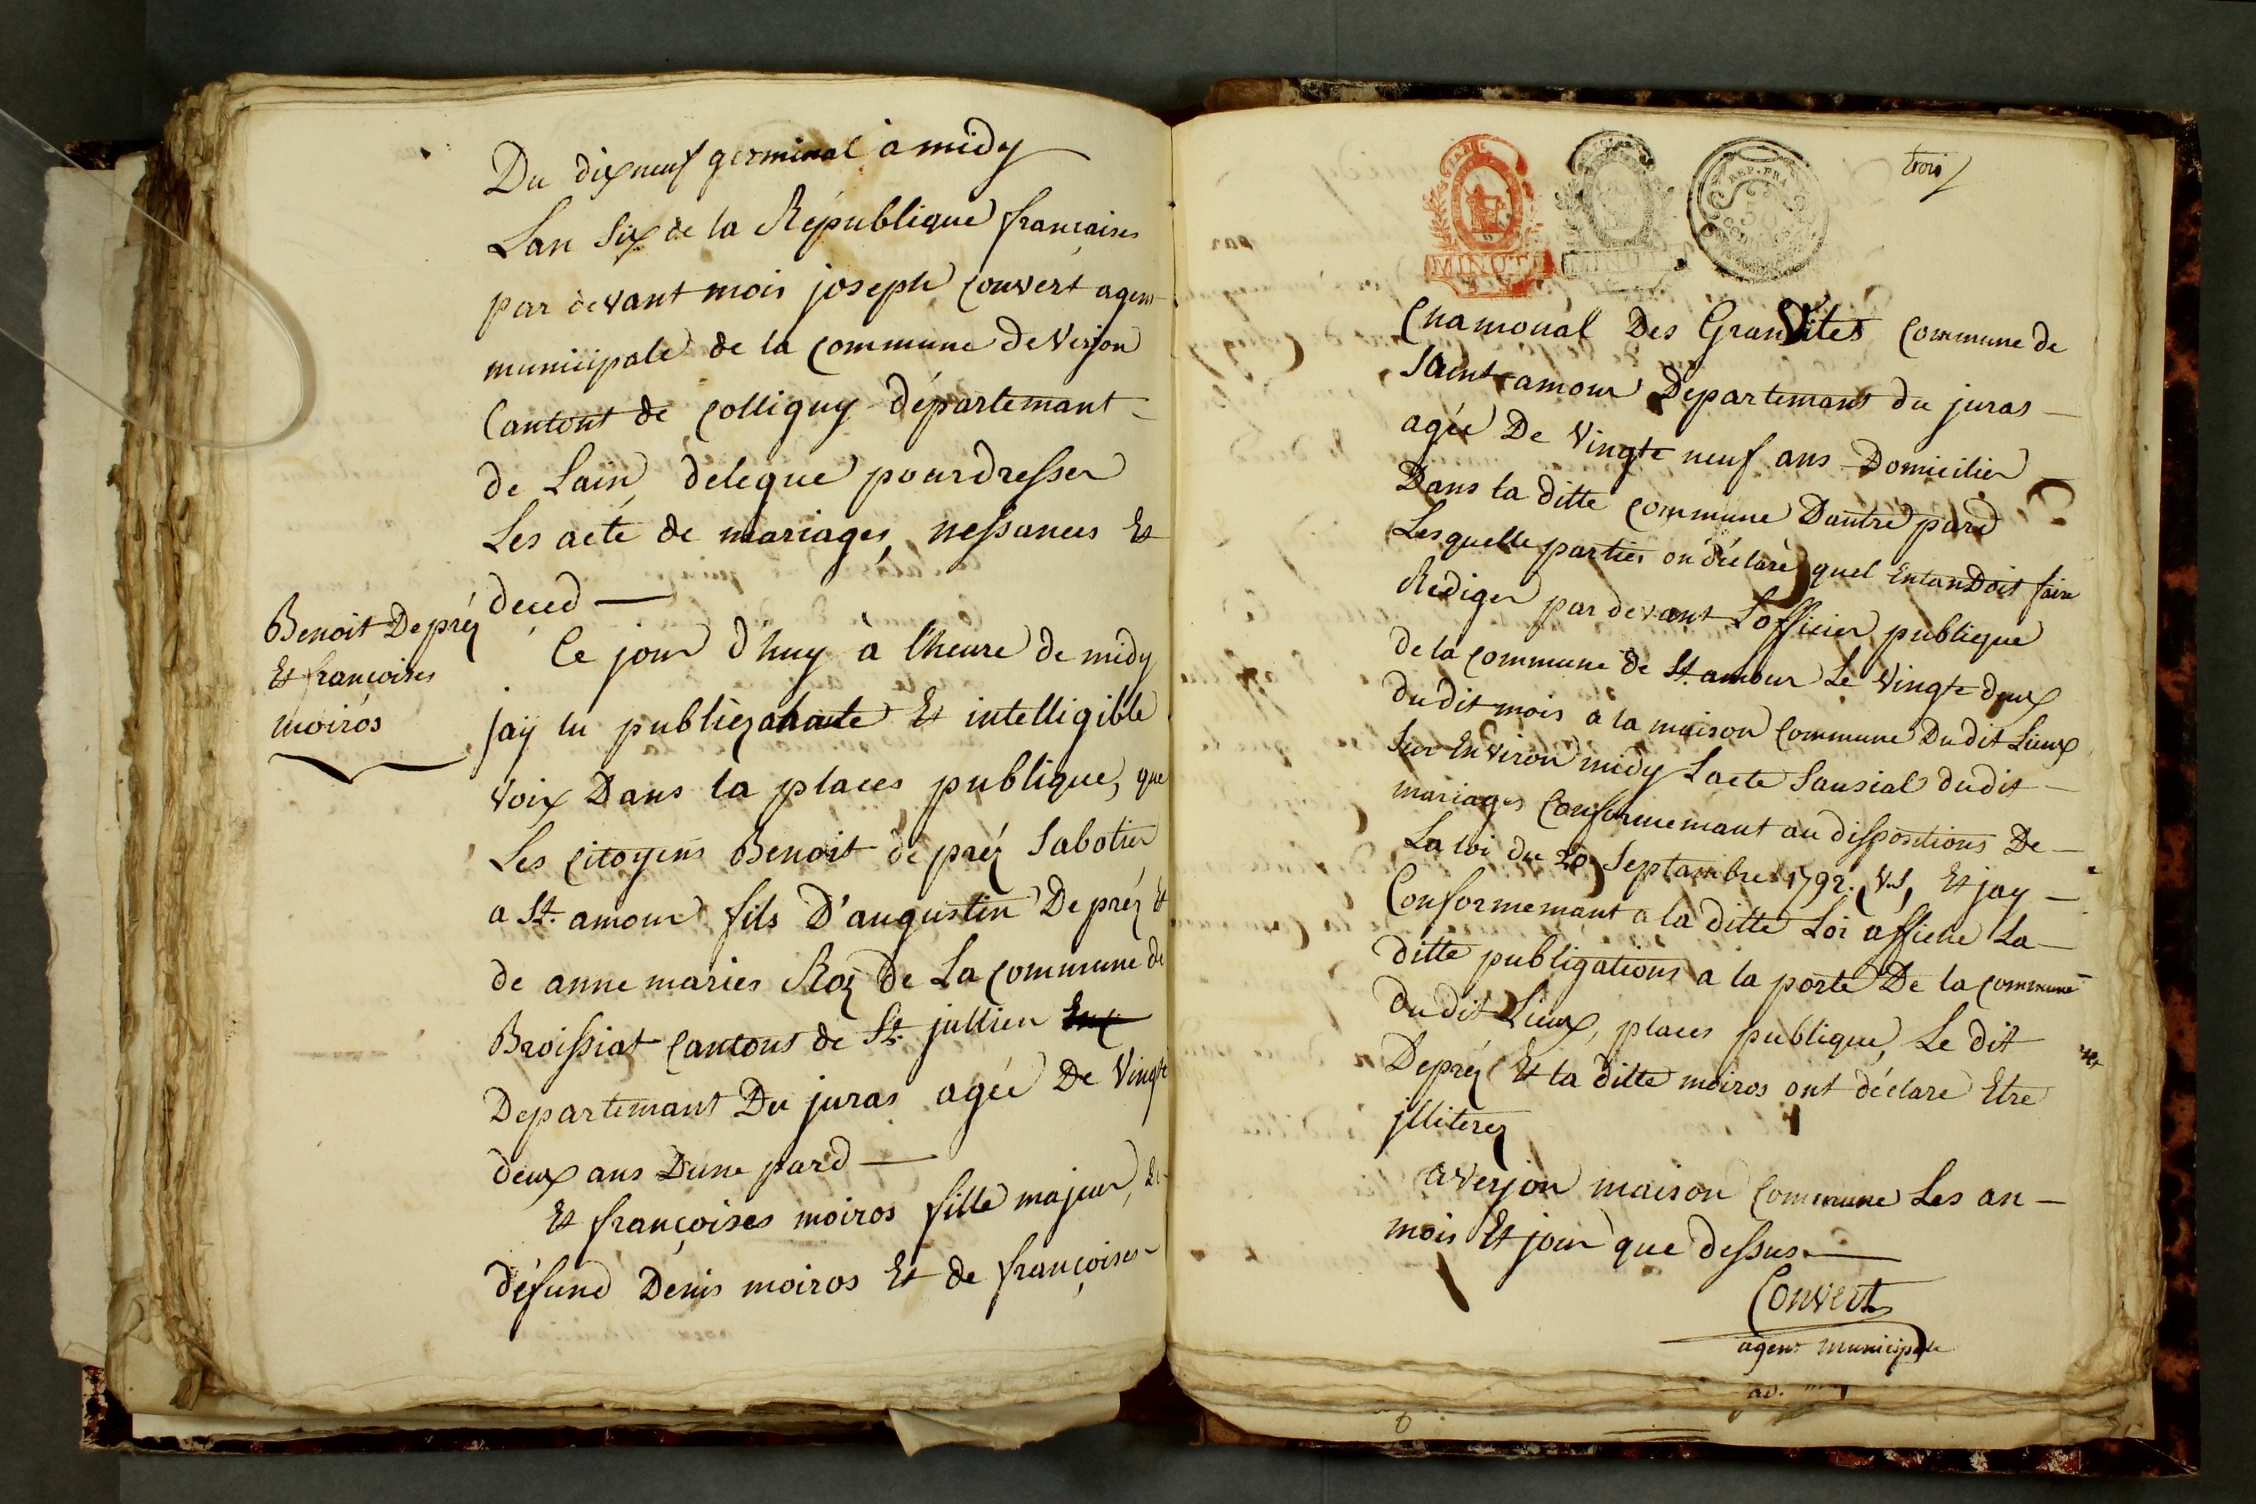 Du dixneuf germinal à midy
Lan Six de la République françaises
par devant mois joseph Convert agent
municipale de la commune de Verjon
Cantont de Colligny départemant
de Lain delegue pour dresser
Les acte de mariages, nessances Et
deced —
Benoit Depréz
Et françoises
moiros
Ce jour d'huy à lheure de midy
jaÿ lu publiéz a haute Et intelligible
voix Dans la places publique, que
Les Citoyens Benoit de préz Sabotier
a St. amour fils D'augustin De préz Et
de anne maries Roz De La commune de
Broissiat cantons de St. jullien
Departemant Du juras agée De Vingte
deux ans Dune pard —
Et françoises moiros fille majeur, de
défund Denis moiros Et de françoises
trois
REP. FRA
50
MINUTE
MINUTE
Chamonal Des Granvites Commune de
Saint amour Departemant du juras —
agée De Vingte neuf ans Domicilier
Dans la ditte commune Dautre pard
Lesquelle parties on déclaré quel Entandoit faire
Rediger par devant Lofficier publique
de la commune de St. amour Le Vingte deux
du dit mois a la maison Commune Du dit Lieux
Sur Environ midy Lacte Sausial du dit —
mariages Conformemant au dispositions De —
La loi du 20 Septambre 1792. V.S, Et jay —
Conformemant a la ditte Loi affiche La —
ditte publigations a la porte De la commune
du dit Lieux, places publique, Le dit
Depréz Et la ditte moiros ont déclaré Etre
jlliterez
a verjon maison Commune Les an —
mois Et jour que dessus —
Convert
agent municipale